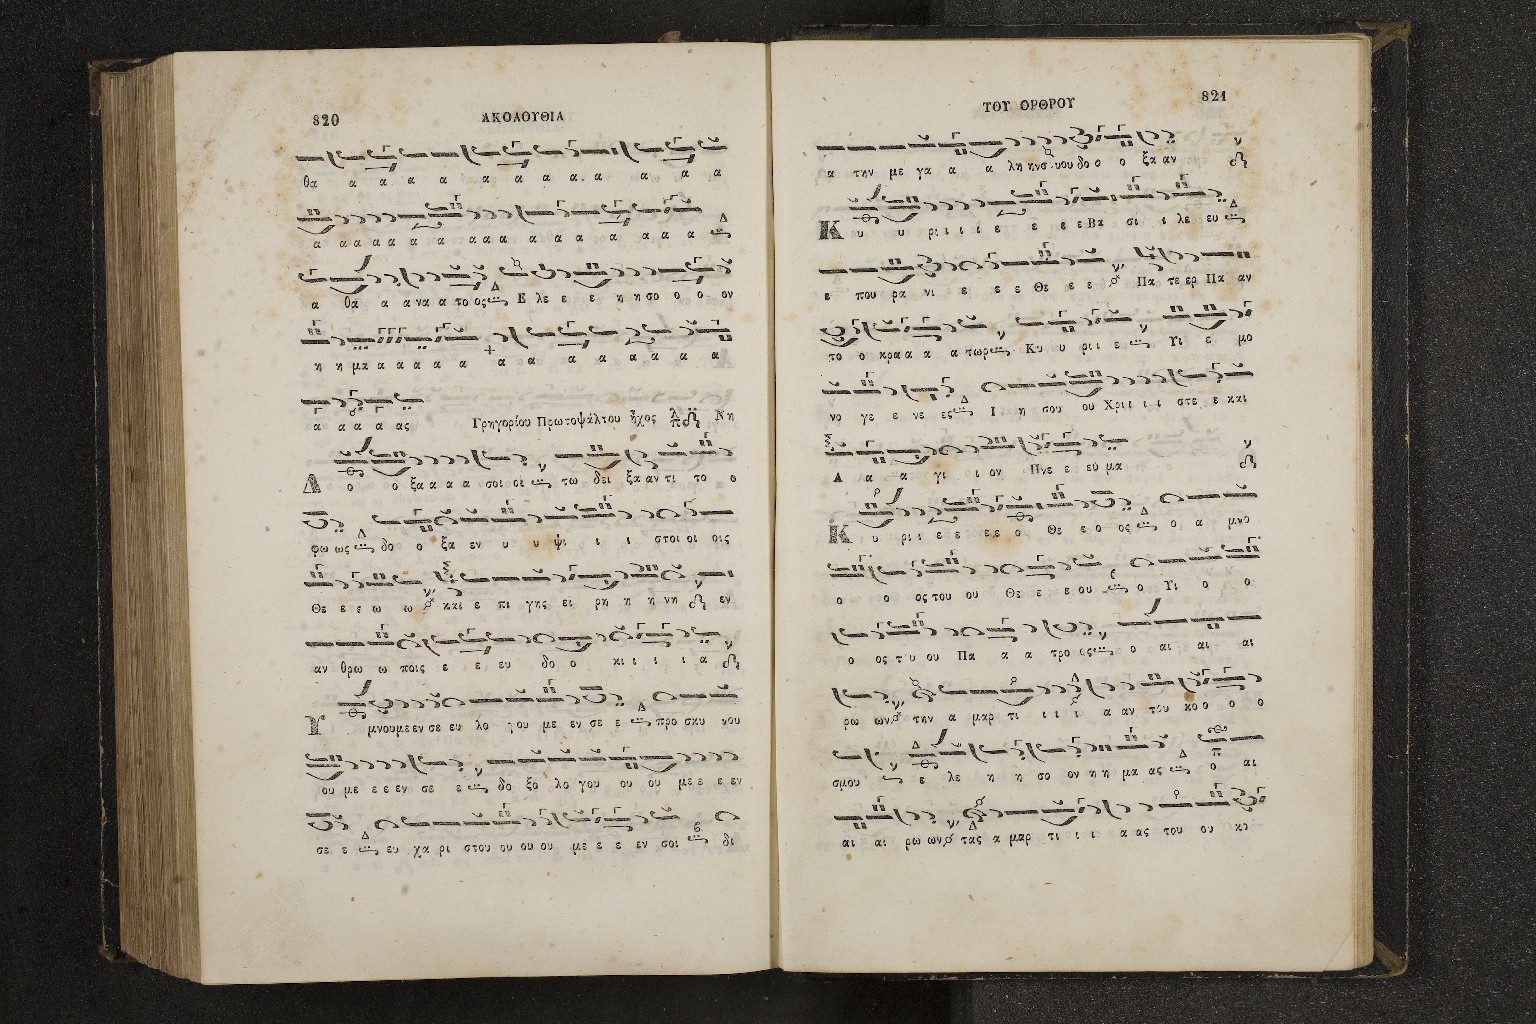 820
ΑΚΟΛΟΥΘΙΑ
θα α α α α α α α α α α α α
α α α α α α α α α α α α α α α α α α
α θα α α να α το ος Ε λε ε ε η η σο ο ο ον
η η μα α α α α α α α α α α α α α
α α α α ας Γρηγορίου Πρωτοψάλτου ἦχος Νη
Δ ο ο ξα α α α σοι οι τω δει ξα αν τι το ο
φω ως δο ο ξα εν υ υ ψι ι ι στοι οι οις
Θε ε ε ω ω και ε πι γης ει ρη η η νη εν
αν θρω ω ποις ε ε ευ δο ο κι ι ι ι α
Υ μνουμεεν σε ευ λο γου με εν σε ε προ σκυ νου
ου με ε ε εν σε ε δο ξο λο γου ου ου με ε ε εν
σε ε ευ χα ρι στου ου ου ου με ε ε εν σοι δι
ΤΟΥ ΟΡΘΡΟΥ
821
α την με γα α α λη ην σου ου δο ο ο ξα αν
Κ υ υ ρι ι ι ι ε ε ε ε Βα σι ι λε ευ
ε που ρα νι ε ε ε Θε ε ε Πα τε ερ Πα αν
το ο κρα α α α τωρ Κυ υ ρι ι ε Υι ε μο
νο γε ε νε ες Ι η σου ου Χρι ι ι ι στε ε και
Α α α γι ι ον Πνε ε ευ μα
Κ υ ρι ι ε ε ε ε ο Θε ε ο ος ο α μνο
ο ο ος του ου Θε ε ε ου ο Υι ο ο
ο ος του ου Πα α α τρο ος ο αι αι αι
ρω ων την α μαρ τι ι ι ι α αν του κο ο ο ο
σμου ε λε η η σο ον η η μα ας ο αι
αι αι ρω ων τας α μαρ τι ι ι α ας του ου κο